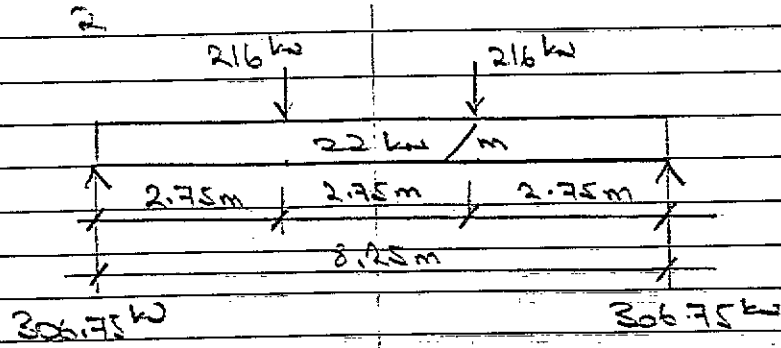 2
216 kN 216 kN
22 kN/m
2.75m 2.75m 2.75m
8.25m
306.75 kN 306.75 kN